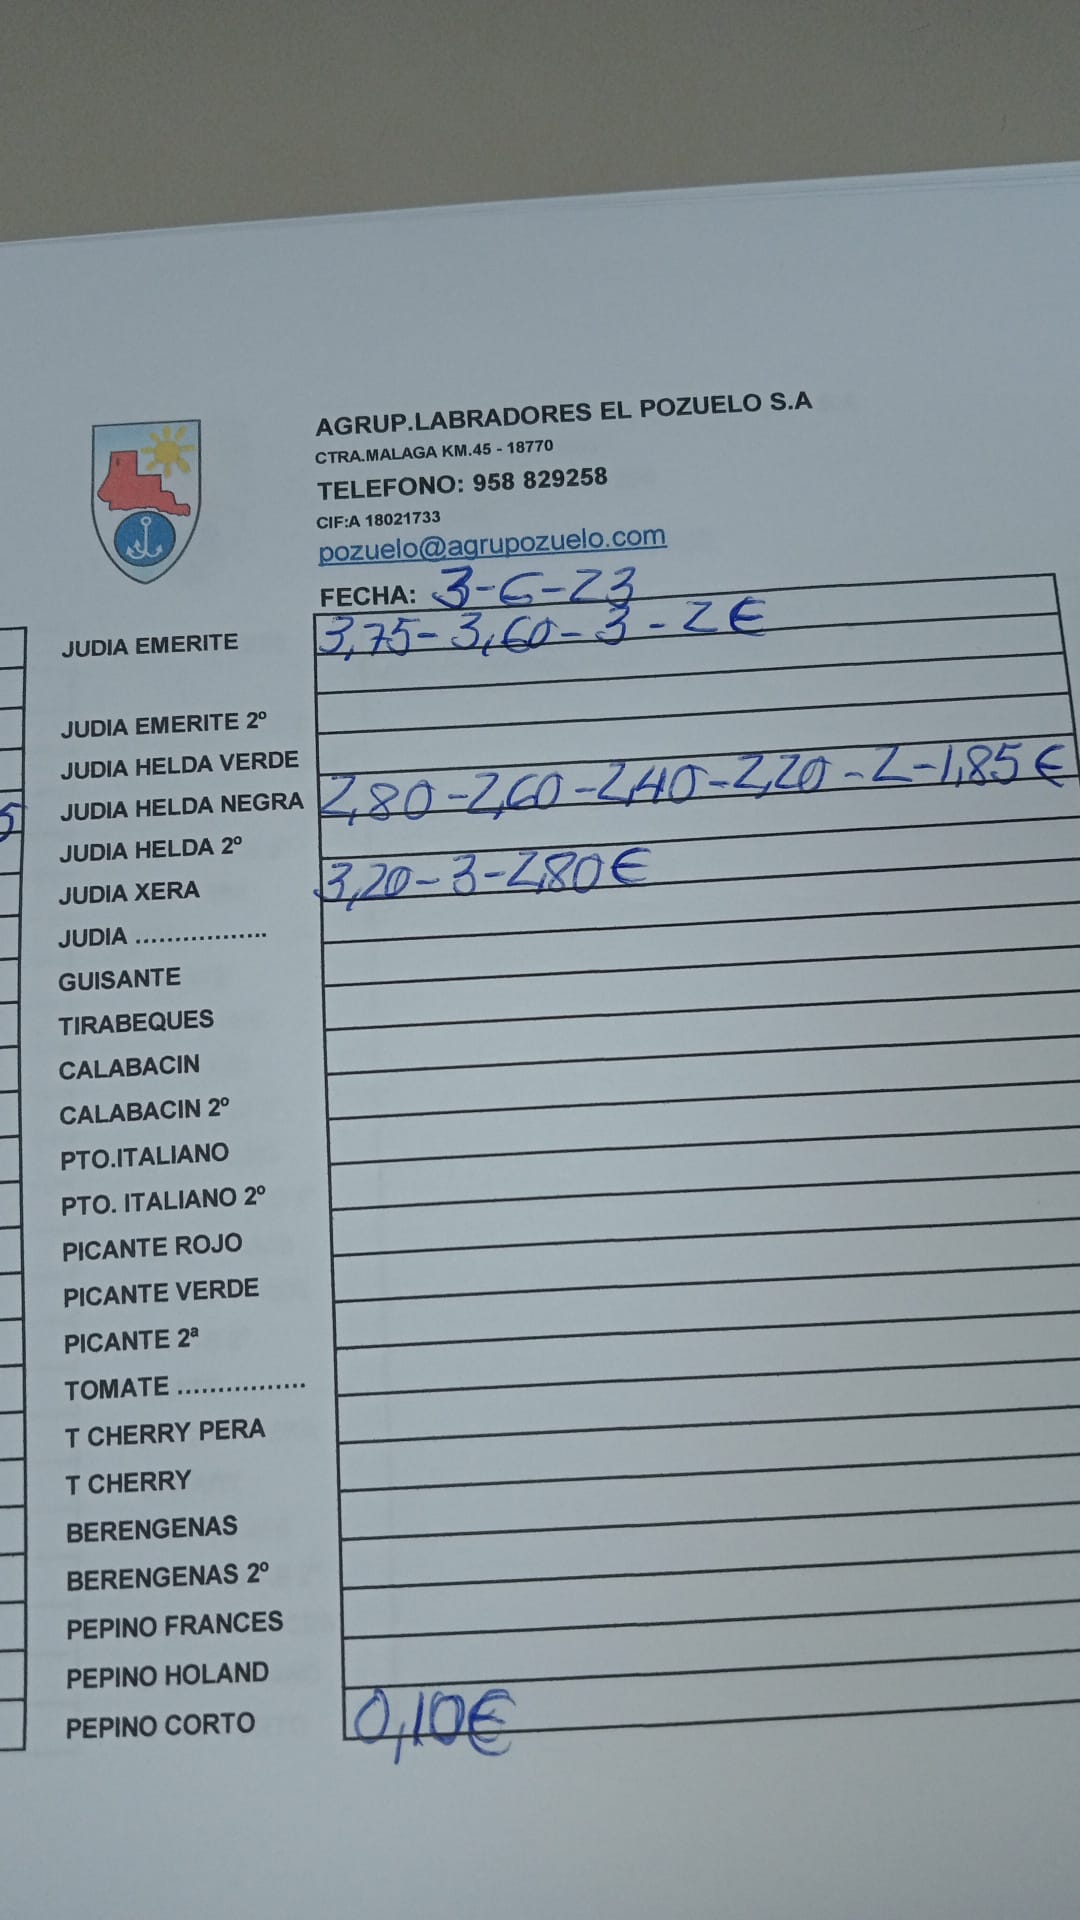 AGRUP.LABRADORES EL POZUELO S.A
CTRA.MALAGA KM.45 - 18770
TELEFONO: 958 829258
CIF:A 18021733
pozuelo@agrupozuelo.com
FECHA: 3-6-23
JUDIA EMERITE 3,75-3,60-3-2€
JUDIA EMERITE 2º
JUDIA HELDA VERDE
5 JUDIA HELDA NEGRA 2,80-2,60-2,40-2,20-2-1,85€
JUDIA HELDA 2º
JUDIA XERA 3,20-3-2,80€
JUDIA .................
GUISANTE
TIRABEQUES
CALABACIN
CALABACIN 2º
PTO.ITALIANO
PTO. ITALIANO 2º
PICANTE ROJO
PICANTE VERDE
PICANTE 2ª
TOMATE ................
T CHERRY PERA
T CHERRY
BERENGENAS
BERENGENAS 2º
PEPINO FRANCES
PEPINO HOLAND
PEPINO CORTO 0,10€